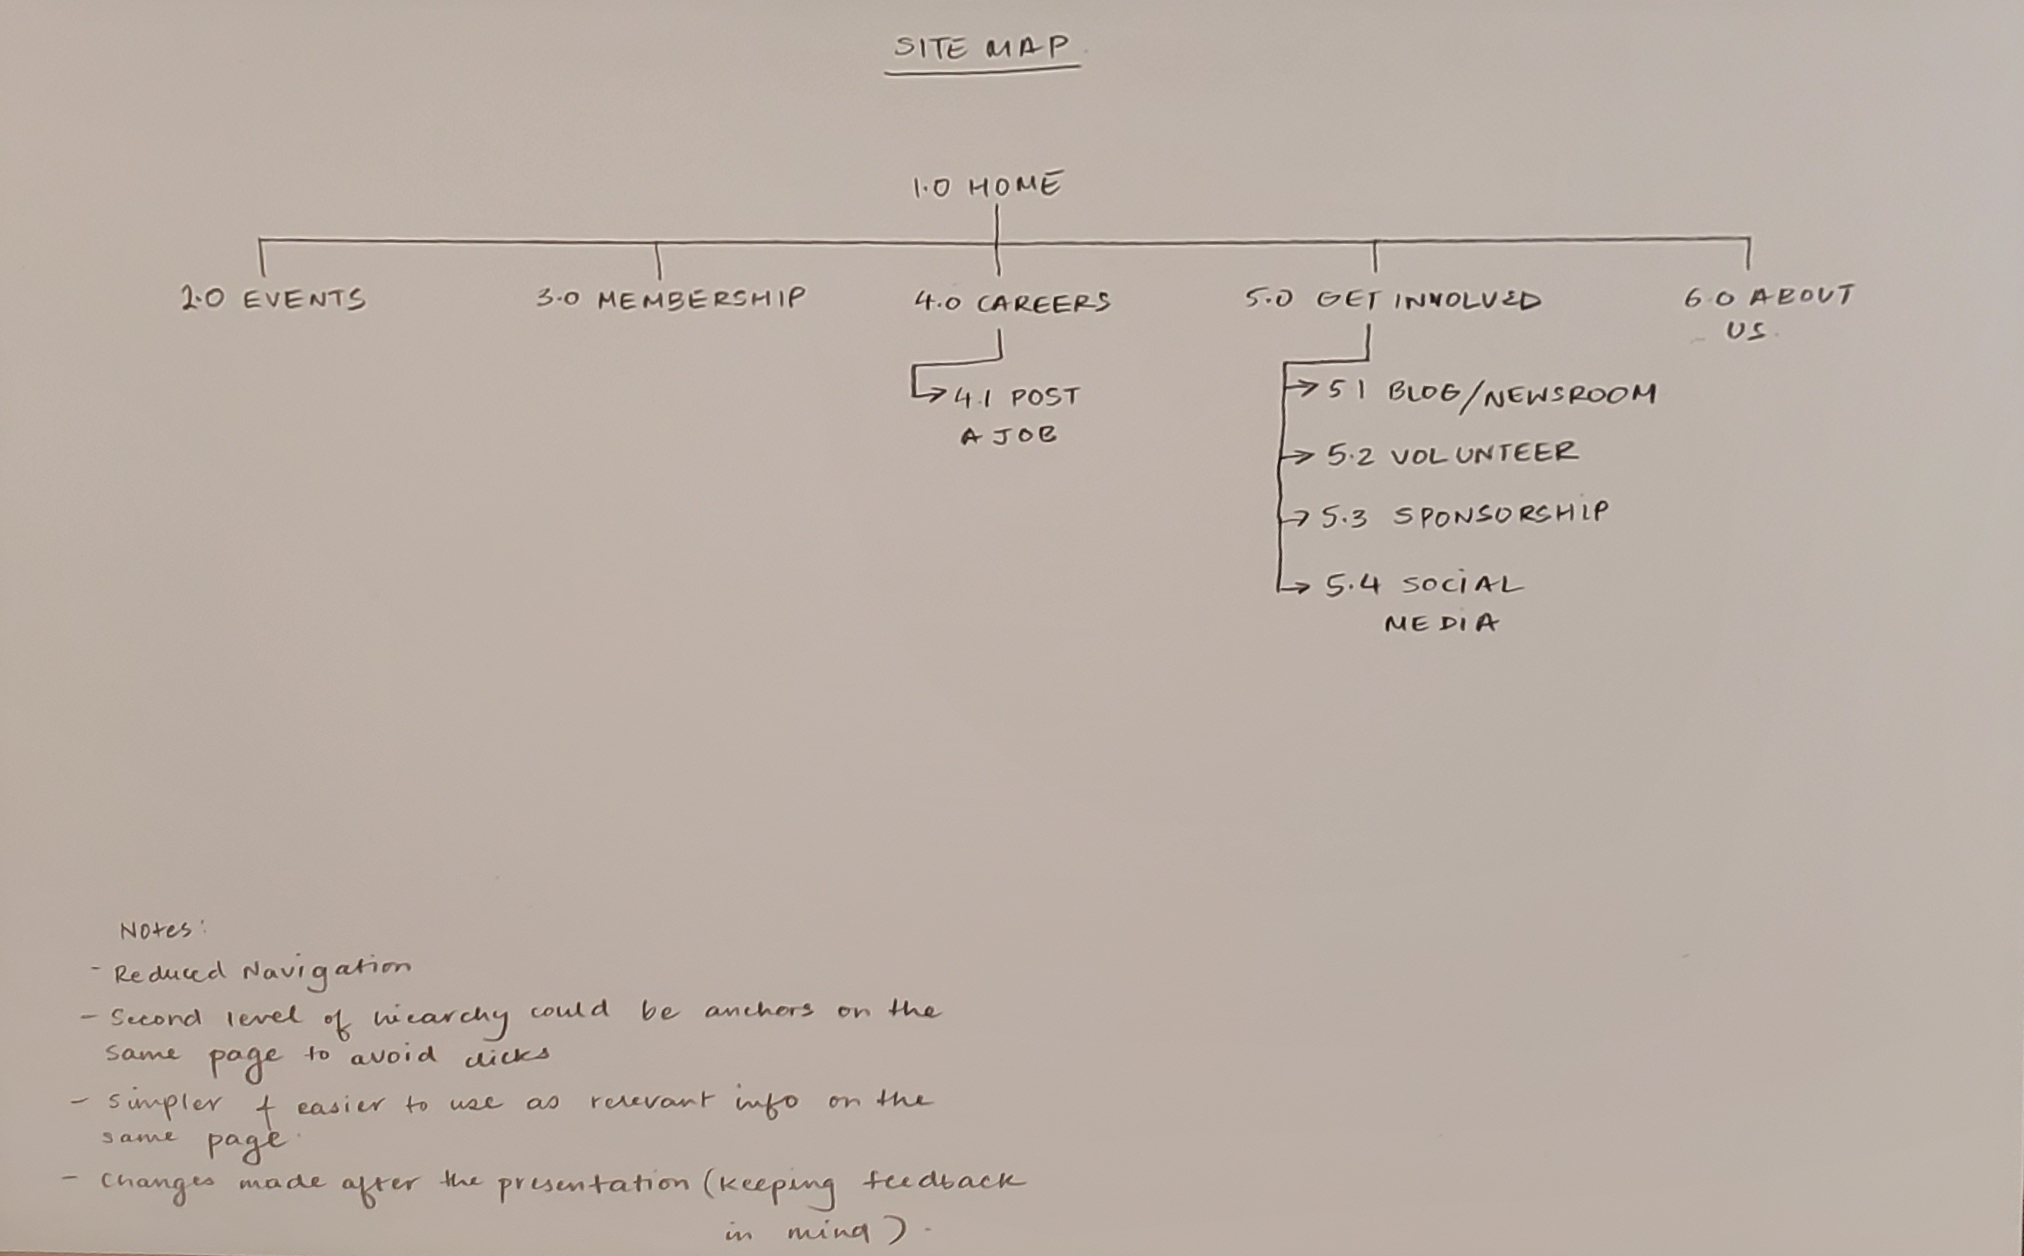 SITE MAP
1.0 HOME
2.0 EVENTS
3.0 MEMBERSHIP
4.0 CAREERS
5.0 GET INVOLVED
6.0 ABOUT
US.
4.1 POST
A JOB
5.1 BLOG/NEWSROOM
5.2 VOLUNTEER
5.3 SPONSORSHIP
5.4 SOCIAL
MEDIA
Notes:
- Reduced Navigation
- Second level of hiearchy could be anchors on the
same page to avoid clicks
- simpler & easier to use as relevant info on the
same page.
- changes made after the presentation (keeping feedback
in mind).